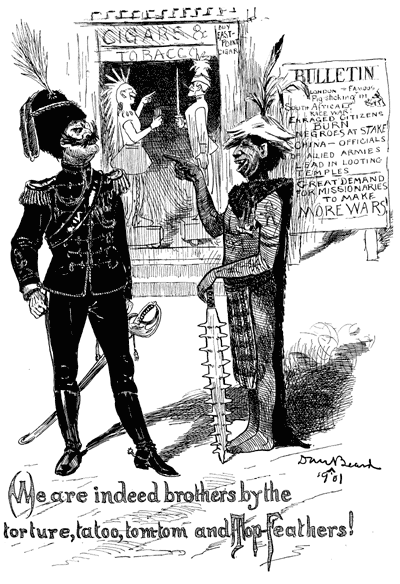 CIGARS &
TOBACCO
BUY
EAST-
POINT
CIGAR
BULLETIN
LONDON - FAMOUS
Pigsticking in
SOUTH AFRICA
RACE WAR
ENRAGED CITIZENS
BURN
NEGROES AT STAKE
CHINA — OFFICIALS
OF ALLIED ARMIES
LEAD IN LOOTING
TEMPLES
GREAT DEMAND
FOR MISSIONARIES
TO MAKE
MORE WARS
Dan Beard
19 01
We are indeed brothers by the
torture, tatoo, tom-tom and Top-Feathers!